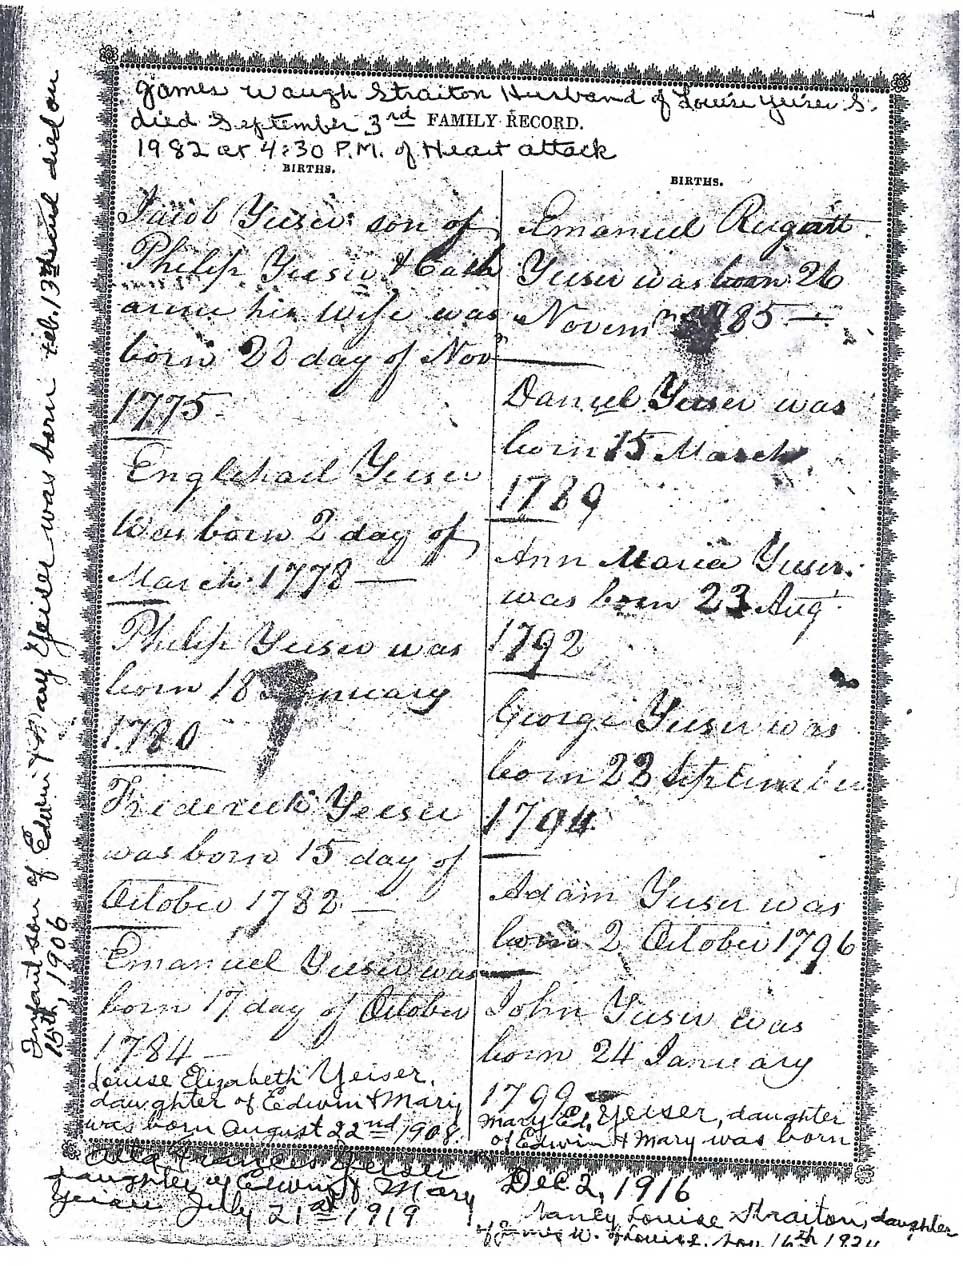 James Waugh Straiton Husband of Louise Yeiser S.
died September 3rd FAMILY RECORD.
1982 at 4:30 P.M. of Heart attack
BIRTHS.
Jacob Yeiser son of
Philip Yeiser & Cath
arine his wife was
born 22 day of Novr
1775
Englehard Yeiser
was born 2 day of
March 1778 —
Philip Yeiser was
born 18 January
1780
Frederick Yeiser
was born 15 day of
October 1782 —
Emanuel Yeiser was
born 17 day of October
1784 —
Louise Elizabeth Yeiser,
daughter of Edwin & Mary
was born August 22nd 1908
Frances Yeiser
daughter of Edwin & Mary
Yeiser July 21st 1919
BIRTHS.
Emanuel
Yeiser was born 26
Novem 1785 —
Daniel Yeiser was
born 15 March
1789
Ann Maria Yeiser
was born 23 Aug
1792
George Yeiser was
born 22 September
1794
Adam Yeiser was
born 2 October 1796
John Yeiser was
born 24 January
1799
Mary Ed. Yeiser, daughter
of Edwin & Mary was born
Dec 2, 1916
Nancy Louise Straiton, daughter
of W. & Louise 16th
Infant son of Edwin & Mary Yeiser was born Feb. 13th and died on
15th, 1906